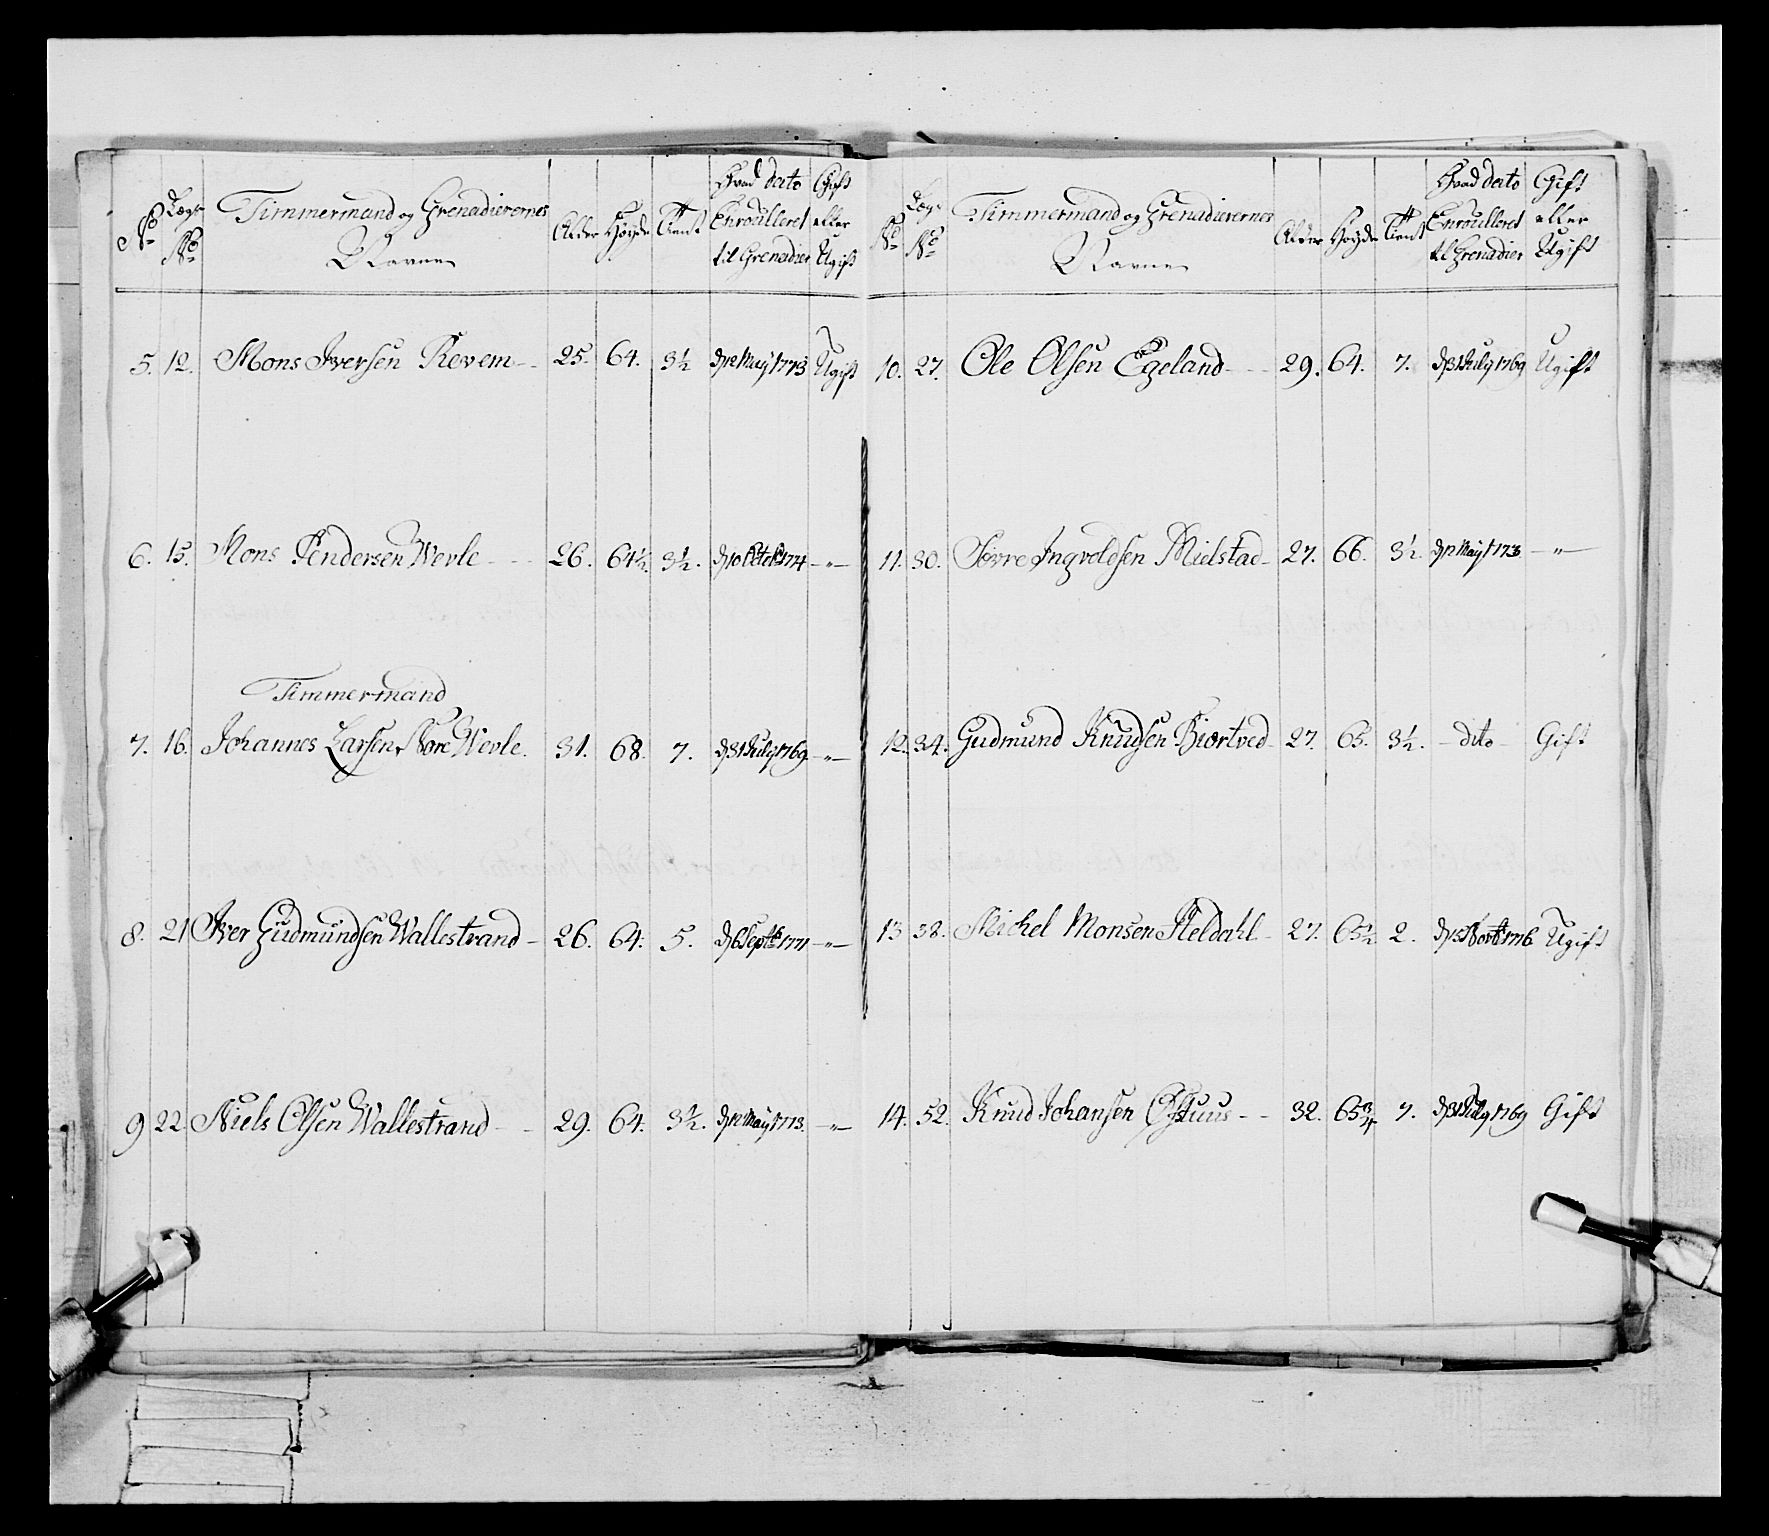 No Lægs No Timmermand og Grenadierernes Navne Alder Høyde Tient Hvad dato Enroulleret til Grenadier Gift eller Ugift
5. 12. Mons Iversen Revem 25. 64. 3½ d 12 May 1773 Ugift
6. 15. Mons Pendersen Wevle 26. 64½. 3½. d 10 Octobr 1774 —"—
Timmermand
7. 16. Johannes Larsen Store Wevle. 31. 68. 7. d 31 July 1769. —"—
8. 21 Iver Gudmundsen Wallestrand 26. 64. 5. d 6 Septbr 1771 —"—
9 22. Niels Olsen Wallestrand 29. 64. 3½. d 12 May 1773. —"—
No Lægs No Timmermand og Grenadierernes Navne Alder Høyde Tient Hvad dato Enroulleret til Grenadier Gift eller Ugift
10. 27. Ole Olsen Egeland 29. 64. 7. d 31 July 1769 Ugift
11. 30. Sørre Ingveldsen Mielstad 27. 66. 3½. d 12 May 1773 —"—
12. 34. Gudmund Knudsen Biørtved 27. 65. 3½. dito Gift
13 38. Michel Monsen Heldahl 27. 65½ 2. d 15 Novbr 1776. Ugift
14. 52. Knud Johansen 32. 65¾ 7. d 31 July 1769 Gift